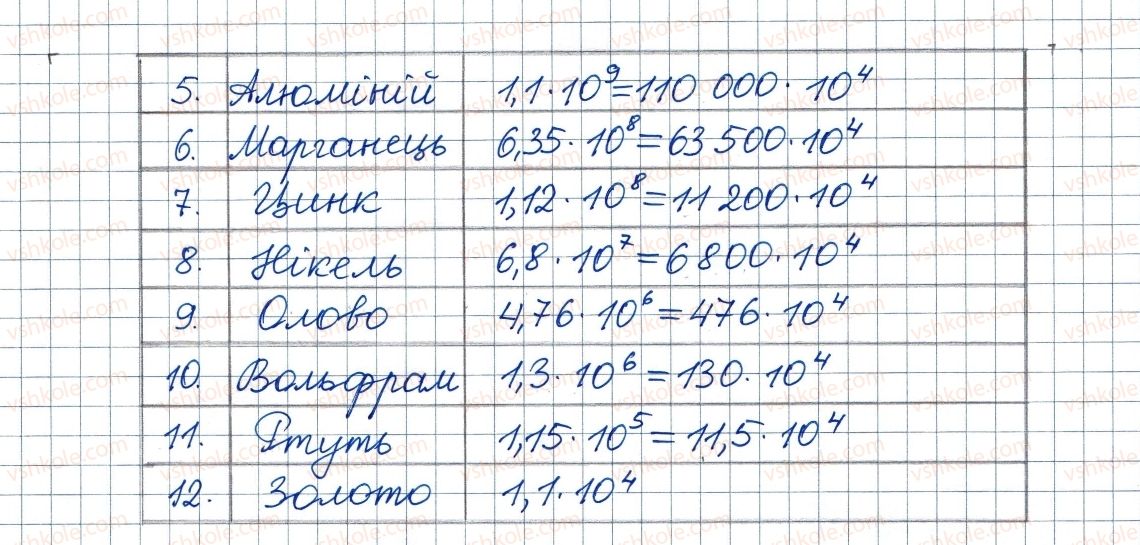 5. Алюміній 1,1·10⁹=110 000·10⁴
6. Марганець 6,35·10⁸=63 500·10⁴
7. Цинк 1,12·10⁸=11 200·10⁴
8. Нікель 6,8·10⁷=6 800·10⁴
9. Олово 4,76·10⁶=476·10⁴
10. Вольфрам 1,3·10⁶=130·10⁴
11. Ртуть 1,15·10⁵=11,5·10⁴
12. Золото 1,1·10⁴